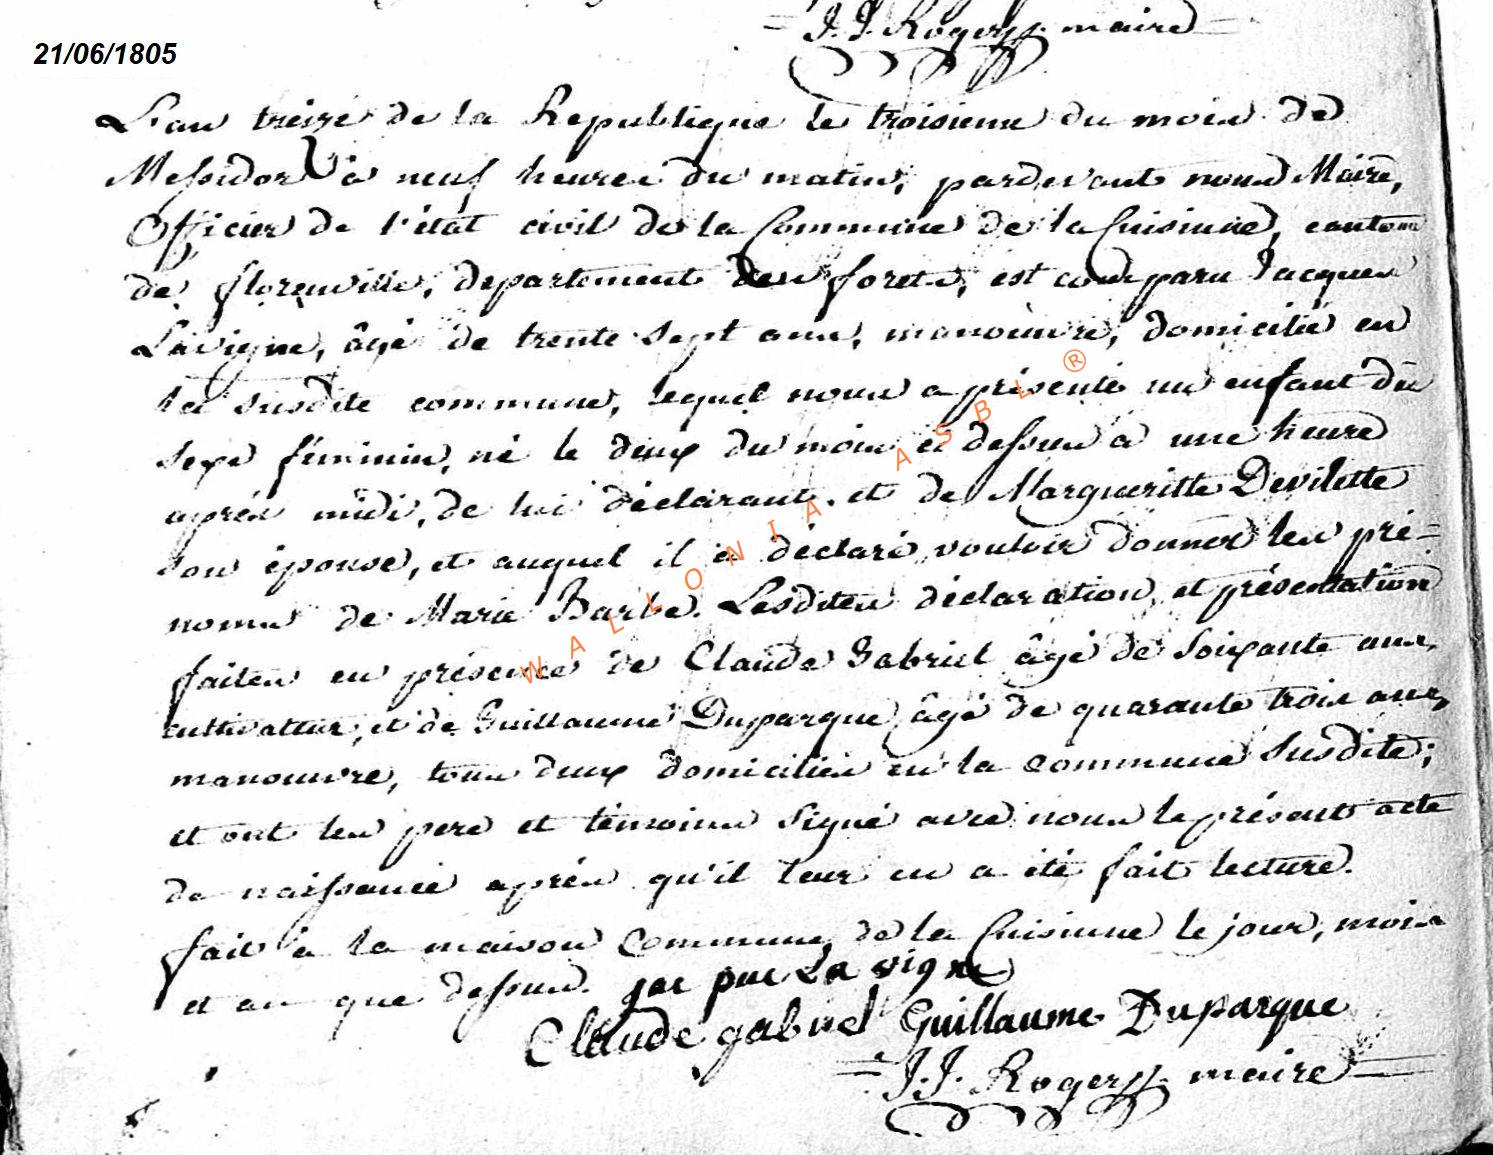 J. J. Rogers maire
21/06/1805
L'an treize de la Republique le troisieme du mois de
Messidor à neuf heures du matin, pardevant nous Maire,
Officier de l'état civil de la Commune de la Cuisinne, canton
de florenville, departement des forets, est comparu Jacques
Lavigne, âgé de trente sept ans, manoeuvre, domicilié en
la susdite commune, lequel nous a présenté un enfant du
sexe féminin, né le deux du mois ci dessus à une heure
après midi, de lui déclarant, et de Margueritte Devilette
son épouse, et auquel il a déclaré vouloir donner les pré=
noms de Marie Barbe. Lesdites déclaration et présentation
faites en présence de Claude Gabriel âgé de soixante ans,
cultivateur, et de Guillaume Duparque, âgé de quarante trois ans,
manouvre, tous deux domiciliés en la commune susdite;
et ont les pere et témoins signé avec nous le présent acte
de naissance après qu'il leur en a été fait lecture.
fait à la maison Commune de la Cuisinne le jour, mois
et an que dessus. jac que La vigne
Claude gabriel Guillaume Duparque
J. J. Rogers maire
WALLONIA ASBL ®